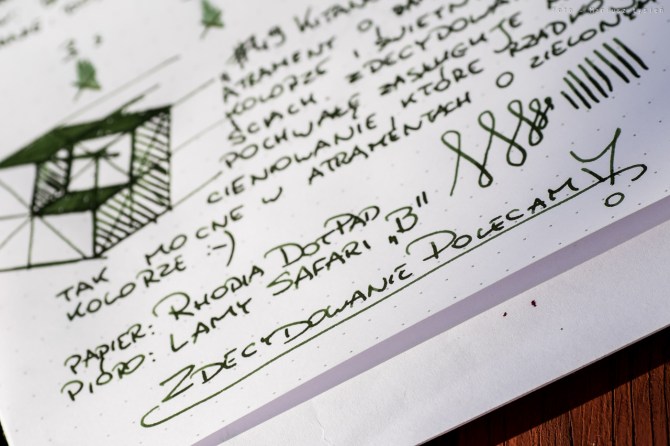 "#49 KITAN
ATRAMENT O
KOLORZE I ŚWIETN
ŚCIACH ZDECYDOWA
POCHWAŁĘ ZASŁUGUJE
CIENIOWANIE, KTÓRE RZADK
TAK MOCNE W ATRAMENTACH O ZIELONY
KOLORZE :-)
PAPIER: RHODIA DOTPAD
PIÓRO: LAMY SAFARI „B"
ZDECYDOWANIE POLECAMY!